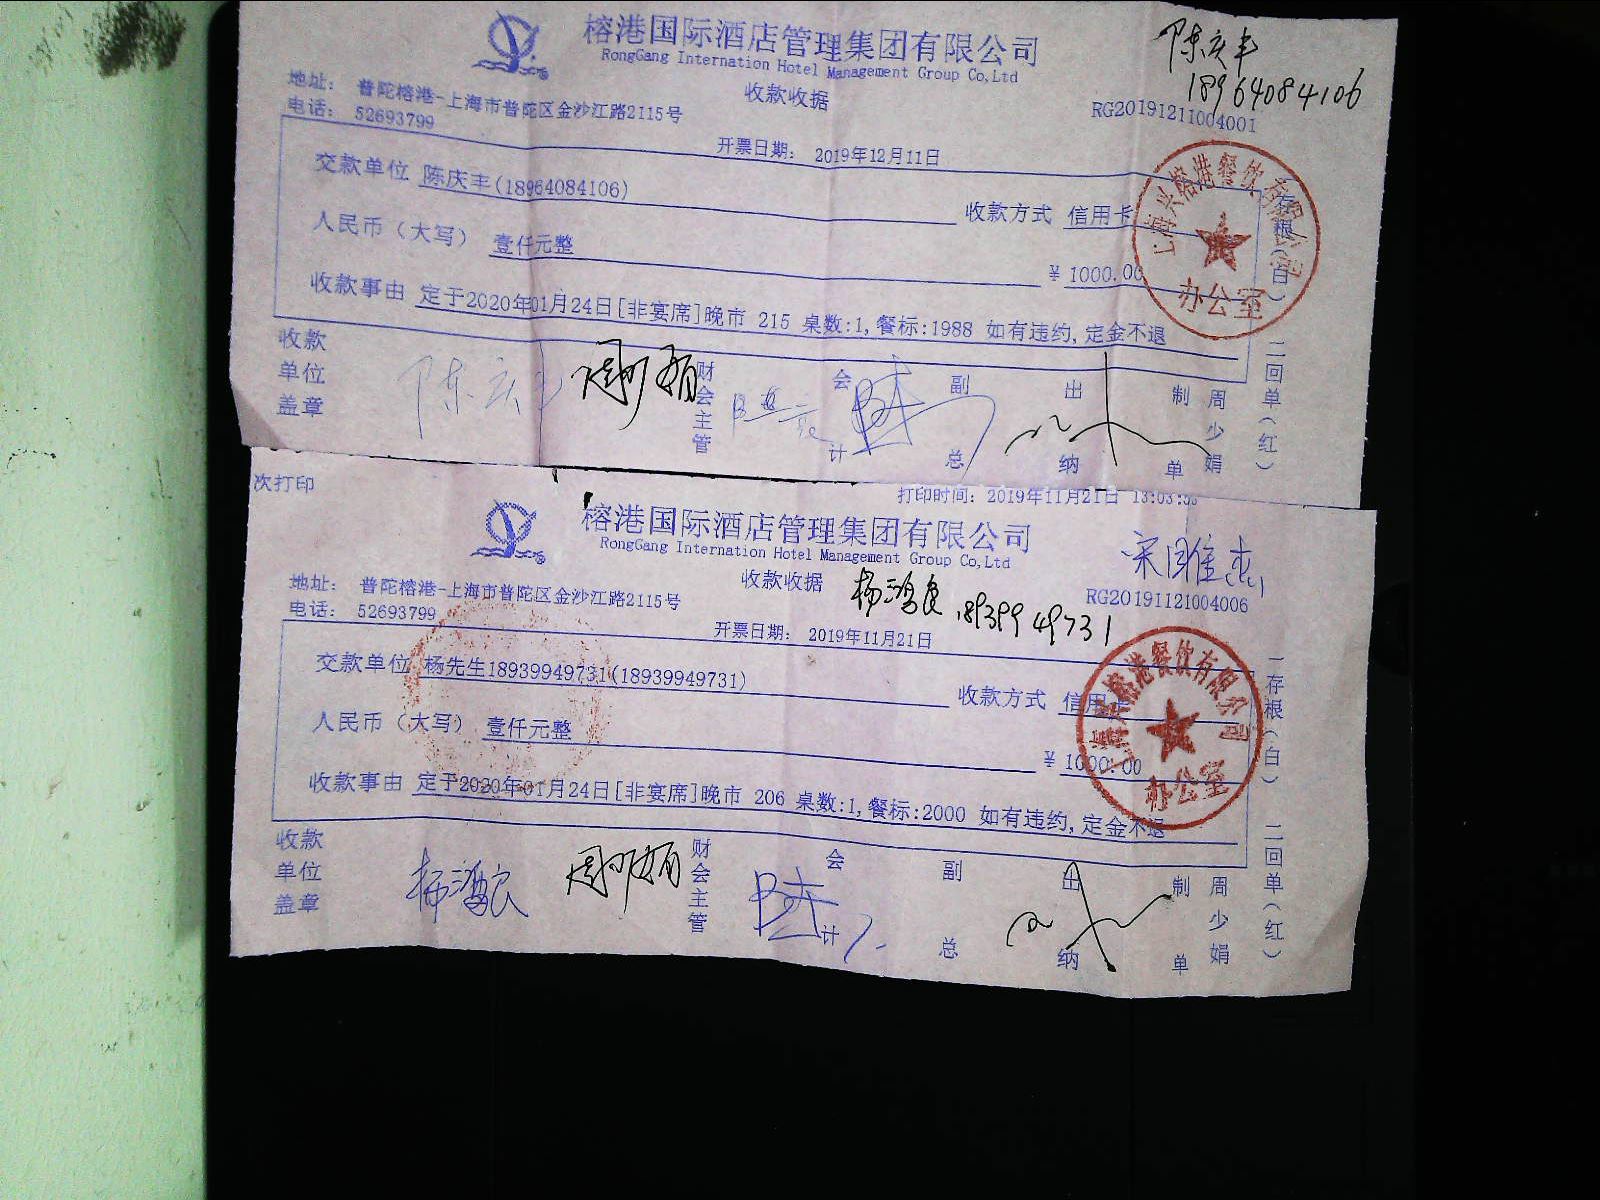 榕港国际酒店管理集团有限公司
RongGang Internation Hotel Management Group Co,Ltd
陈庆丰
18964084106
地址： 普陀榕港-上海市普陀区金沙江路2115号
收款收据
电话： 52693799
RG20191211004001
开票日期： 2019年12月11日
交款单位 陈庆丰(18964084106)
收款方式 信用卡
人民币（大写） 壹仟元整
￥ 1000.00
收款事由 定于2020年01月24日[非宴席]晚市 215 桌数:1,餐标:1988 如有违约,定金不退
存根(白) 二回单(红)
办公室
收款单位盖章
陈庆丰
周少娟
财会主管
会计
副总
出纳
制单
周少娟
次打印
打印时间: 2019年11月21日 13:03:
榕港国际酒店管理集团有限公司
RongGang Internation Hotel Management Group Co,Ltd
地址： 普陀榕港-上海市普陀区金沙江路2115号
收款收据
杨鸿良 18939949731
电话： 52693799
RG20191121004006
开票日期： 2019年11月21日
交款单位 杨先生18939949731(18939949731)
收款方式 信用
人民币（大写） 壹仟元整
￥ 1000.00
收款事由 定于2020年01月24日[非宴席]晚市 206 桌数:1,餐标:2000 如有违约,定金不退
一存根(白) 二回单(红)
榕港餐饮有限公司
办公室
收款单位盖章
杨鸿良
周少娟
财会主管
会计
副总
出纳
制单
周少娟